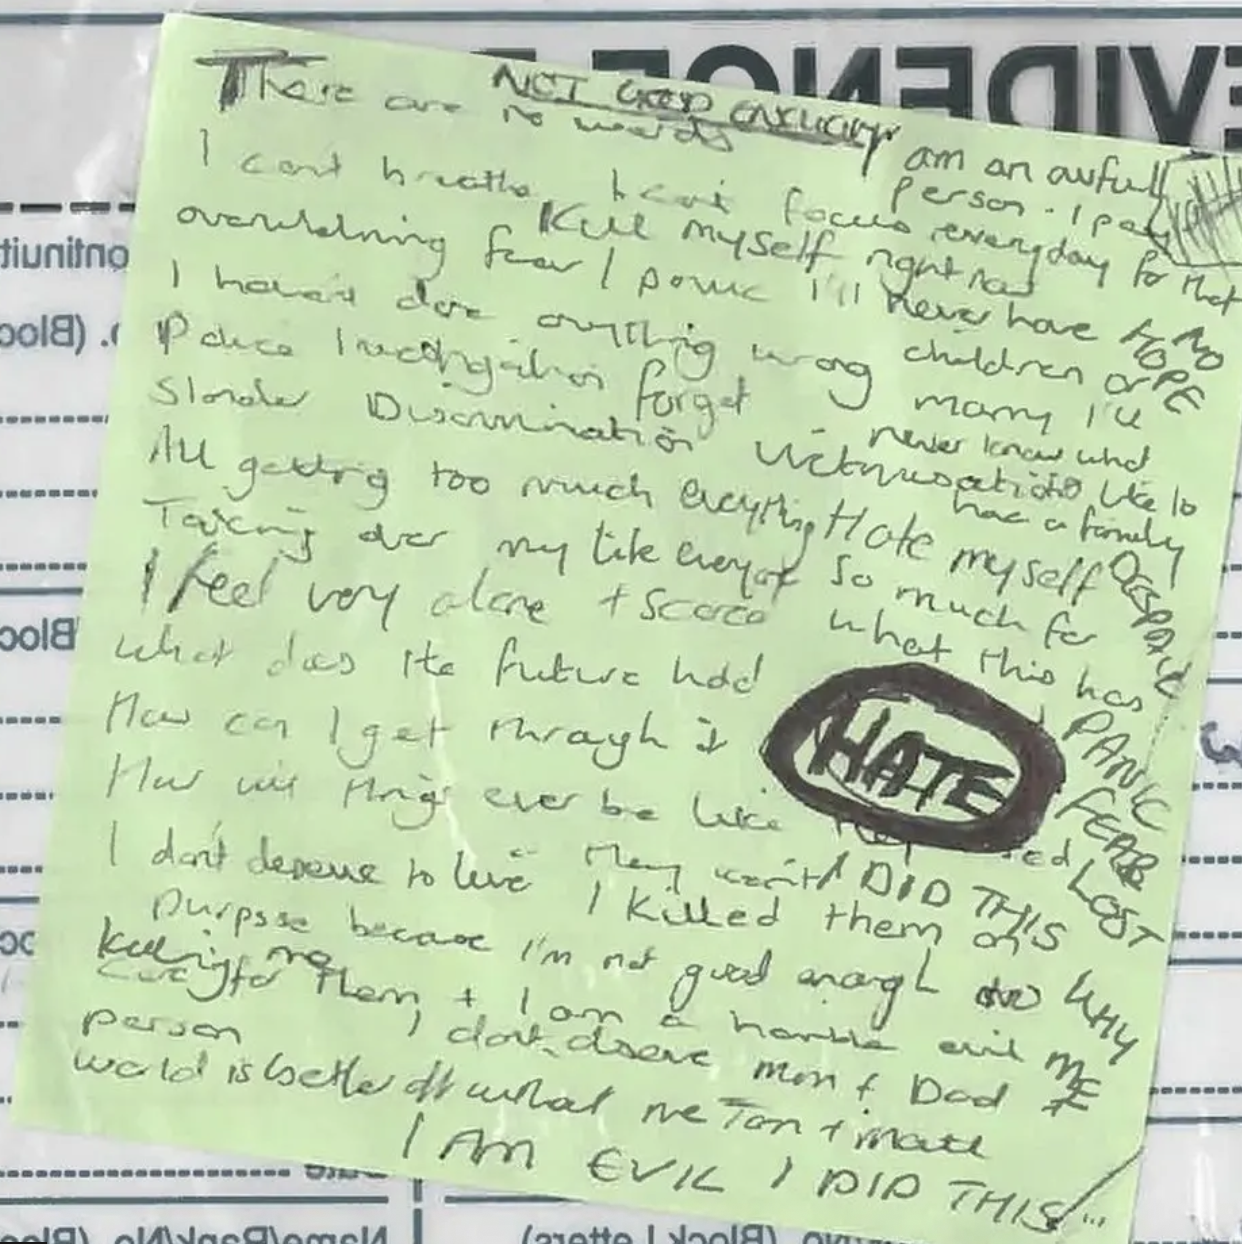 NOT GOOD ENOUGH
There are no words
I am an awfull
person. I pay
I cant breathe I cant focus everyday for that
Kill myself right now
overwhelming fear / panic I'll never have
NO
HOPE
I havent done anything wrong children or
Police Investigation forget marry I'll
never know what
Slander Discrimination Victimisation like to
have a family
All getting too much everything Hate myself
Taking over my life so much for
DESPAIR
I feel very alone + scared what this has
What does the future hold
PANIC
How can I get through it
HATE
FEAR
How will things ever be like
LOST
I dont deserve to live They I DID THIS
I killed them on
purpose because I'm not good enough to
WHY
ME
killing me
care for them + I am a horrible evil
person I dont deserve mum + Dad
world is better off me Tom + Matt
I AM EVIL I DID THIS
EVIDENCE
(Block Letters)
Name/Rank/No. (Block
Date